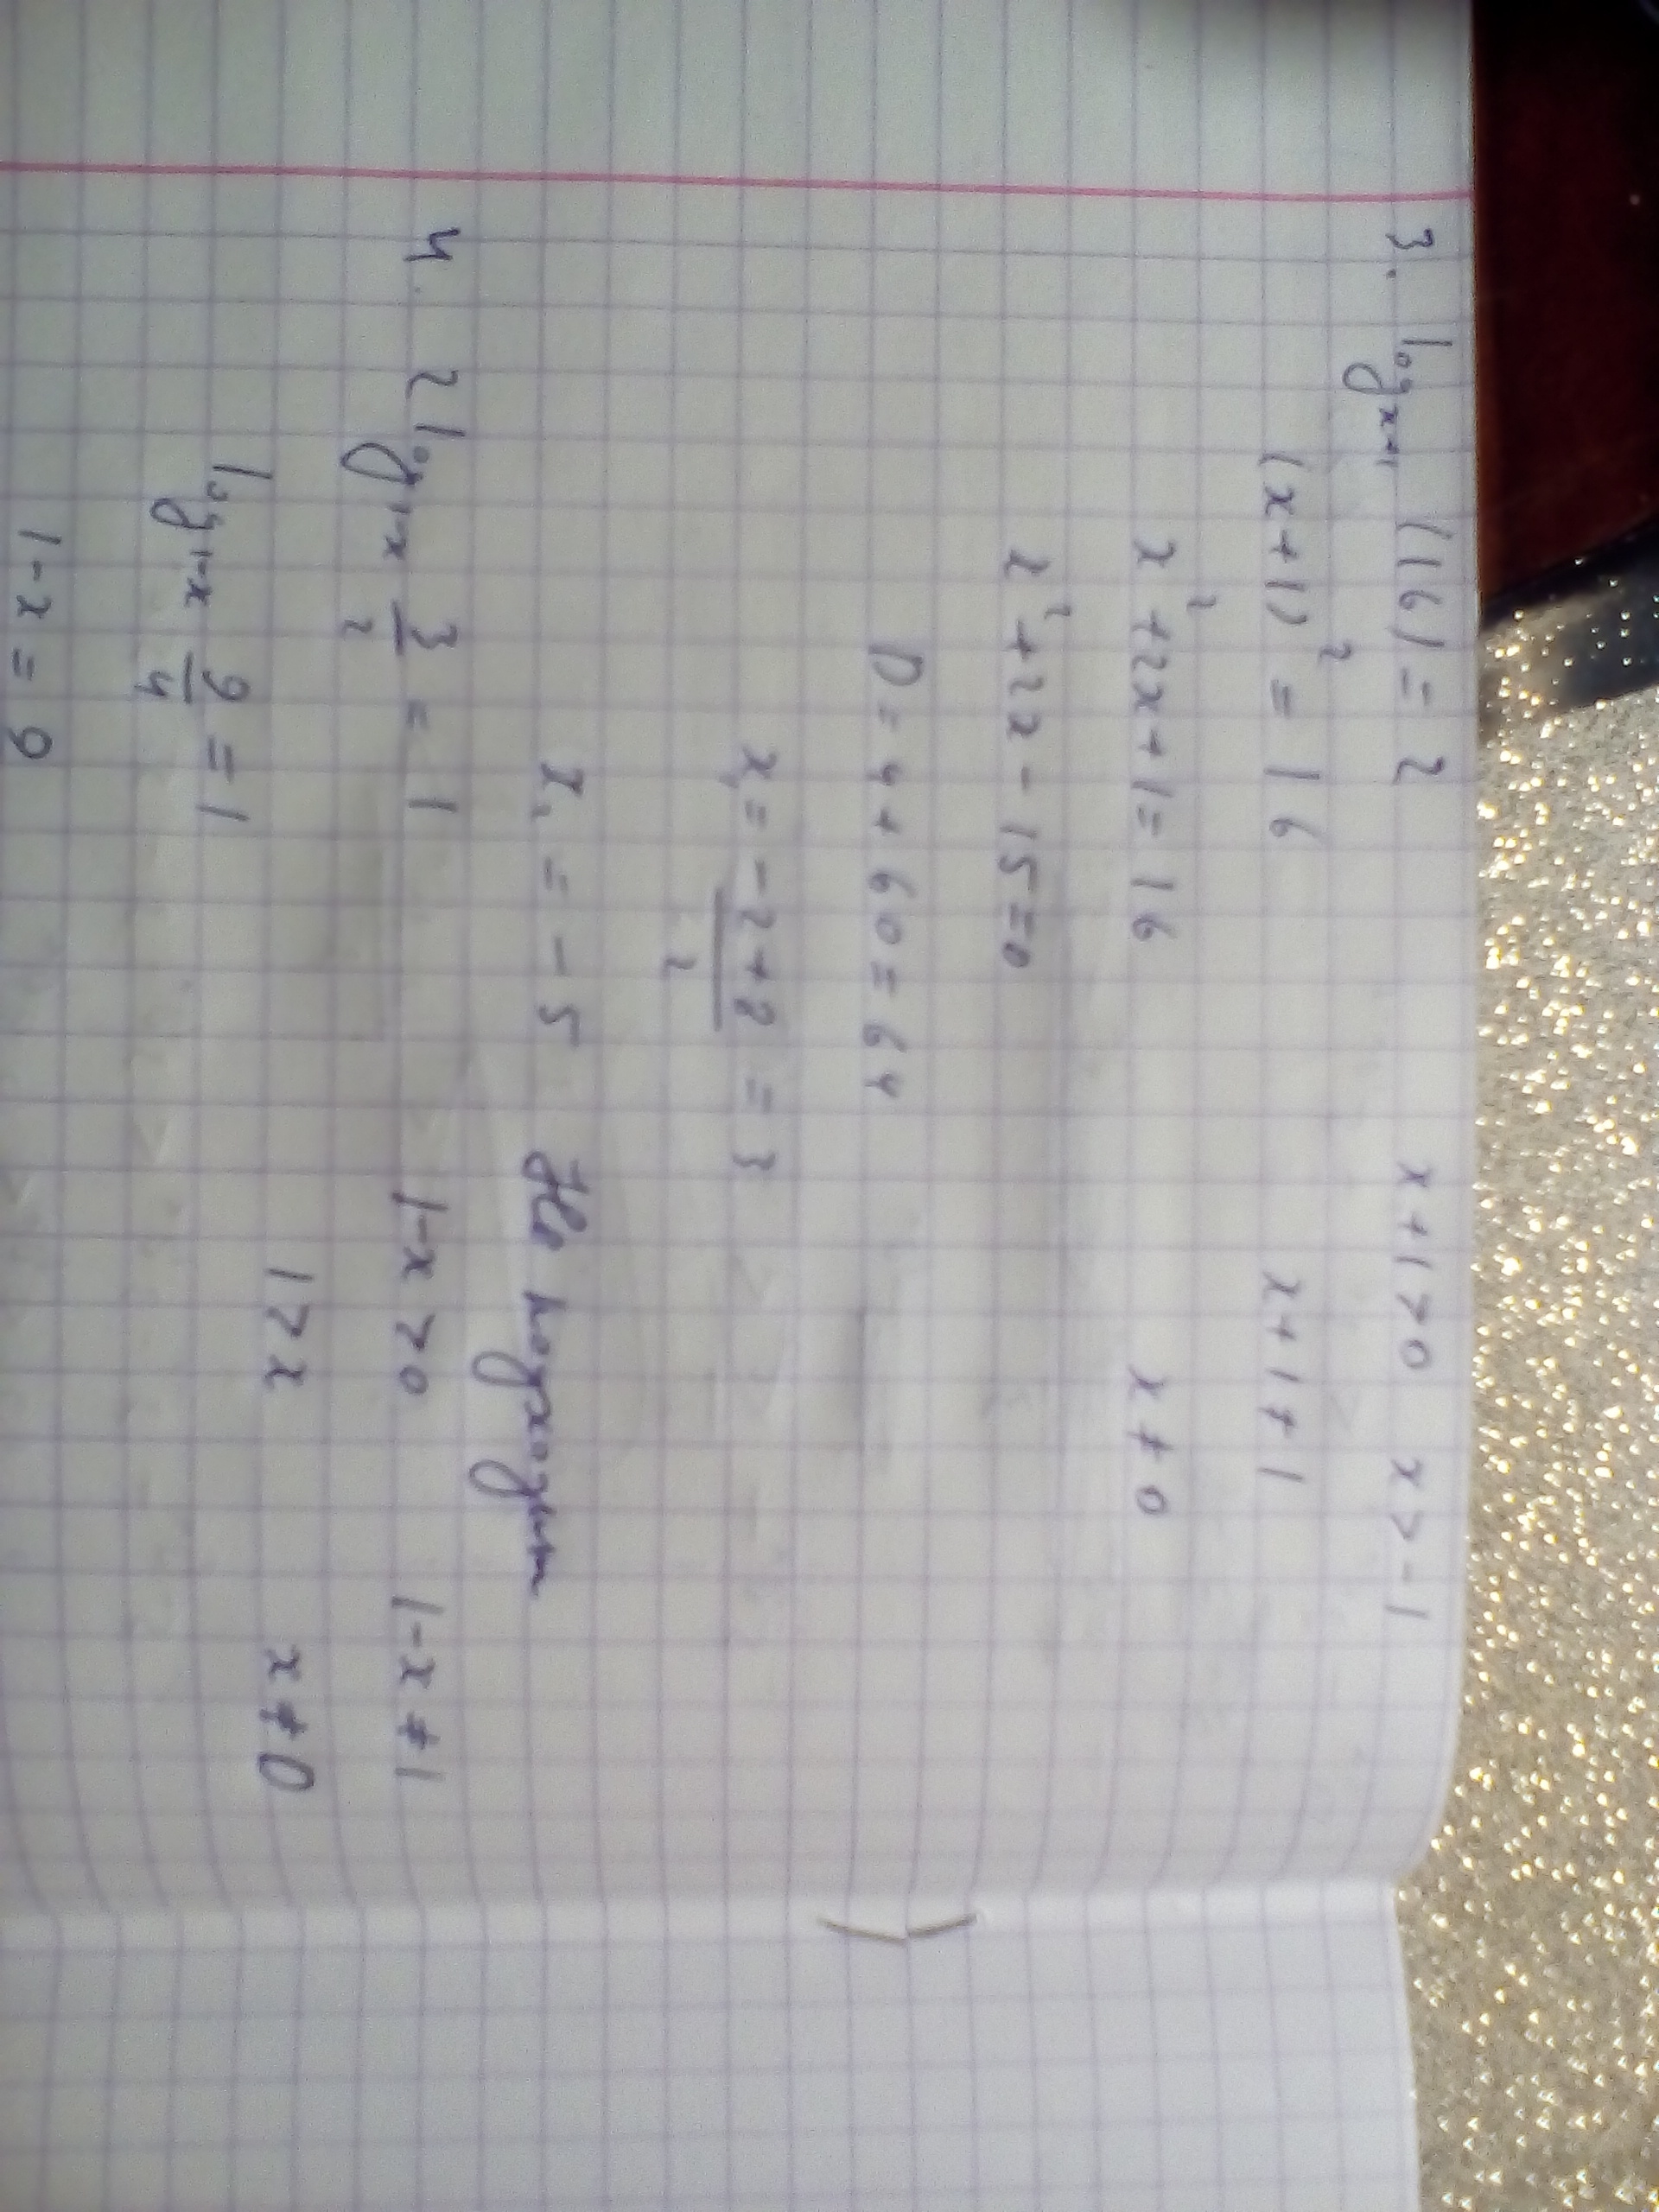 3. log x+1 (16) = 2 x+1>0 x>-1
(x+1)² = 16 x+1≠1
x²+2x+1=16 x≠0
x²+2x-15=0
D=4+60=64
x₁ = (-2+8)/2 = 3
x₂ = -5 Не подходит
4. 2 log 1-x 3/2 = 1 1-x>0 1-x≠1
1>x x≠0
log 1-x 9/4 = 1
1-x = 9